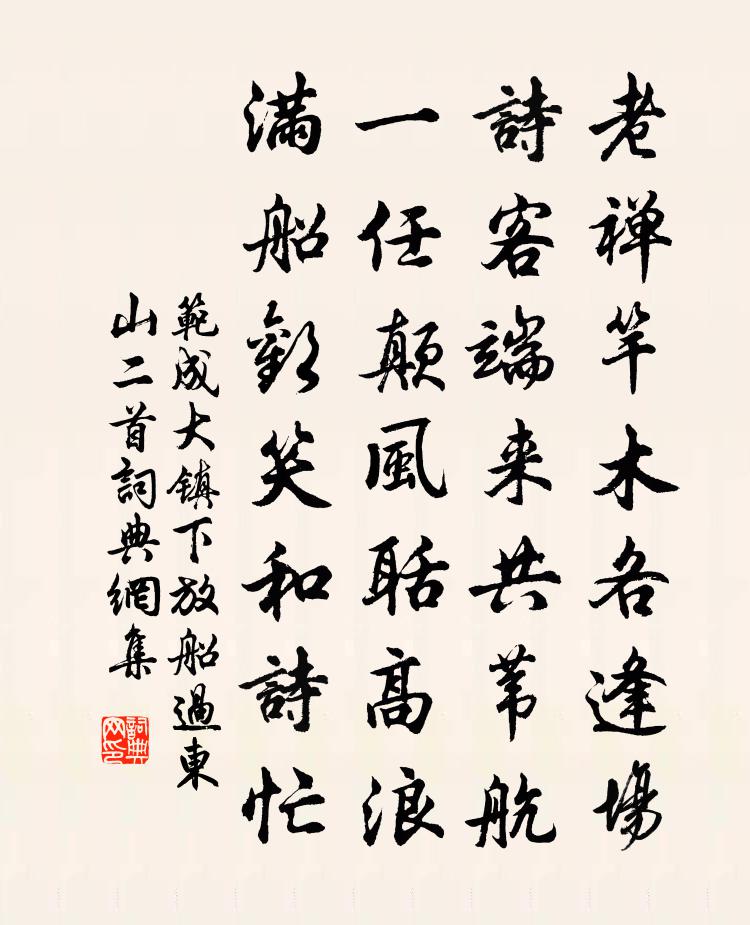 老禅竿木各逢場
詩客端来共苇航
一任颠風聒高浪
满船歡笑和詩忙
範成大镇下放船過東
山二首詞典網集
詞典網印